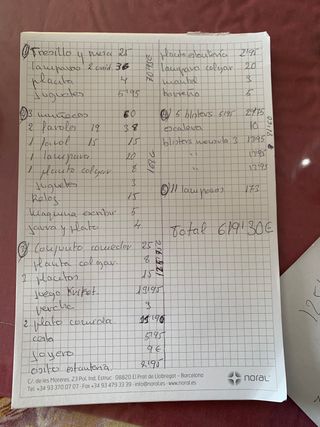 ① Tresillo y mesa 25
lamparas 2 unid 36
planta 4
juguetes 5'95
70'95€
② 3 muñecos 60
2 faroles 19 38
1 farol 15 15
1 lampara 20
1 planta colgar 8
juguetes 3
Reloj 15
maquina escribir 5
jarra y plato 4
168€
③ Conjunto comedor 25
planta colgar 8
2 placitas 15
juego kriket 19'95
perche 3
2 plato comida
cesta 5'95
joyero 9€
osito estanteria 2'95
planta estanteria 2'95
lampara colgar 20
mantel 3
barreño 5
5 blisters 5'95
escalera 10
blisters menula 3 17'95
" 17'95
" 17'95
11 lamparas 173
Total 619'30€
C/ de les Motores, 23 Pol. Ind. Estruc 08820 El Prat de Llobregat - Barcelona
Tel +34 93 370 07 07 - Fax +34 93 479 33 39 - info@noral.es - www.noral.es
noral